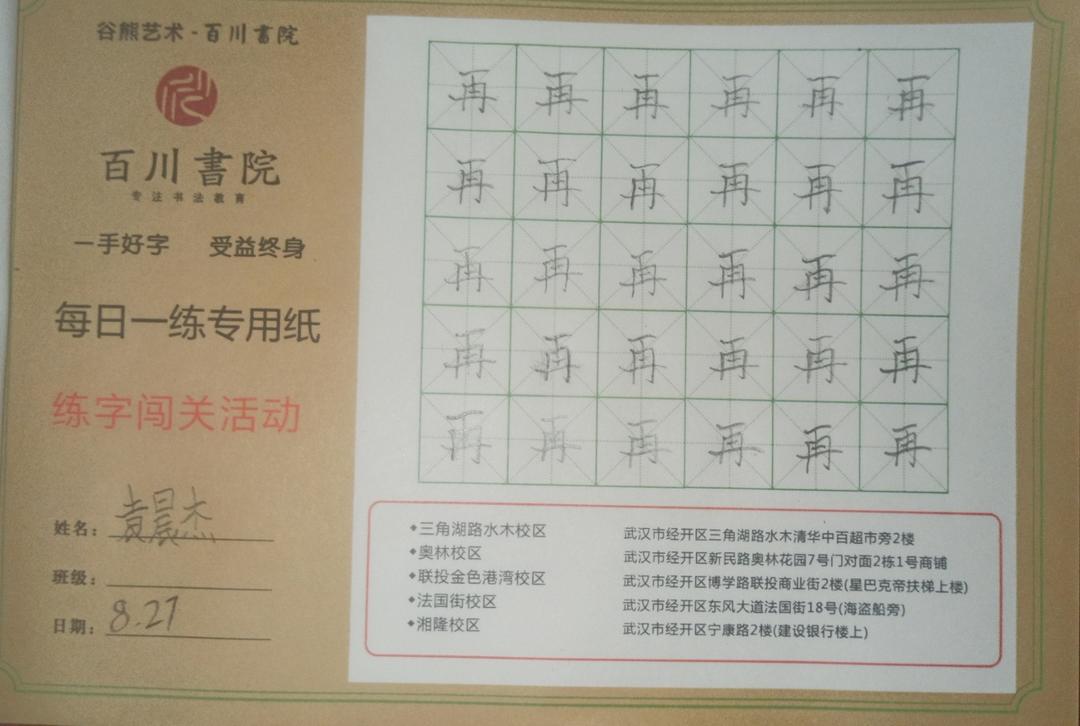 谷熊艺术-百川書院
百川書院
专注书法教育
一手好字 受益终身
每日一练专用纸
练字闯关活动
姓名：袁晨杰
班级：
日期：8.27
再再再再再再
再再再再再再
再再再再再再
再再再再再再
再再再再再再
◆三角湖路水木校区 武汉市经开区三角湖路水木清华中百超市旁2楼
◆奥林校区 武汉市经开区新民路奥林花园7号门对面2栋1号商铺
◆联投金色港湾校区 武汉市经开区博学路联投商业街2楼(星巴克帝扶梯上楼)
◆法国街校区 武汉市经开区东风大道法国街18号(海盗船旁)
◆湘隆校区 武汉市经开区宁康路2楼(建设银行楼上)